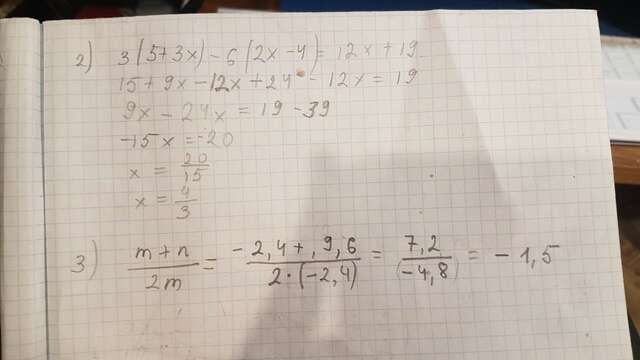 2) 3(5+3x)-6(2x-4)=12x+19
15+9x-12x+24-12x=19
9x-24x=19-39
-15x=-20
x=20/15
x=4/3
3) (m+n)/2m = (-2,4+,9,6)/(2·(-2,4)) = 7,2/(-4,8) = -1,5